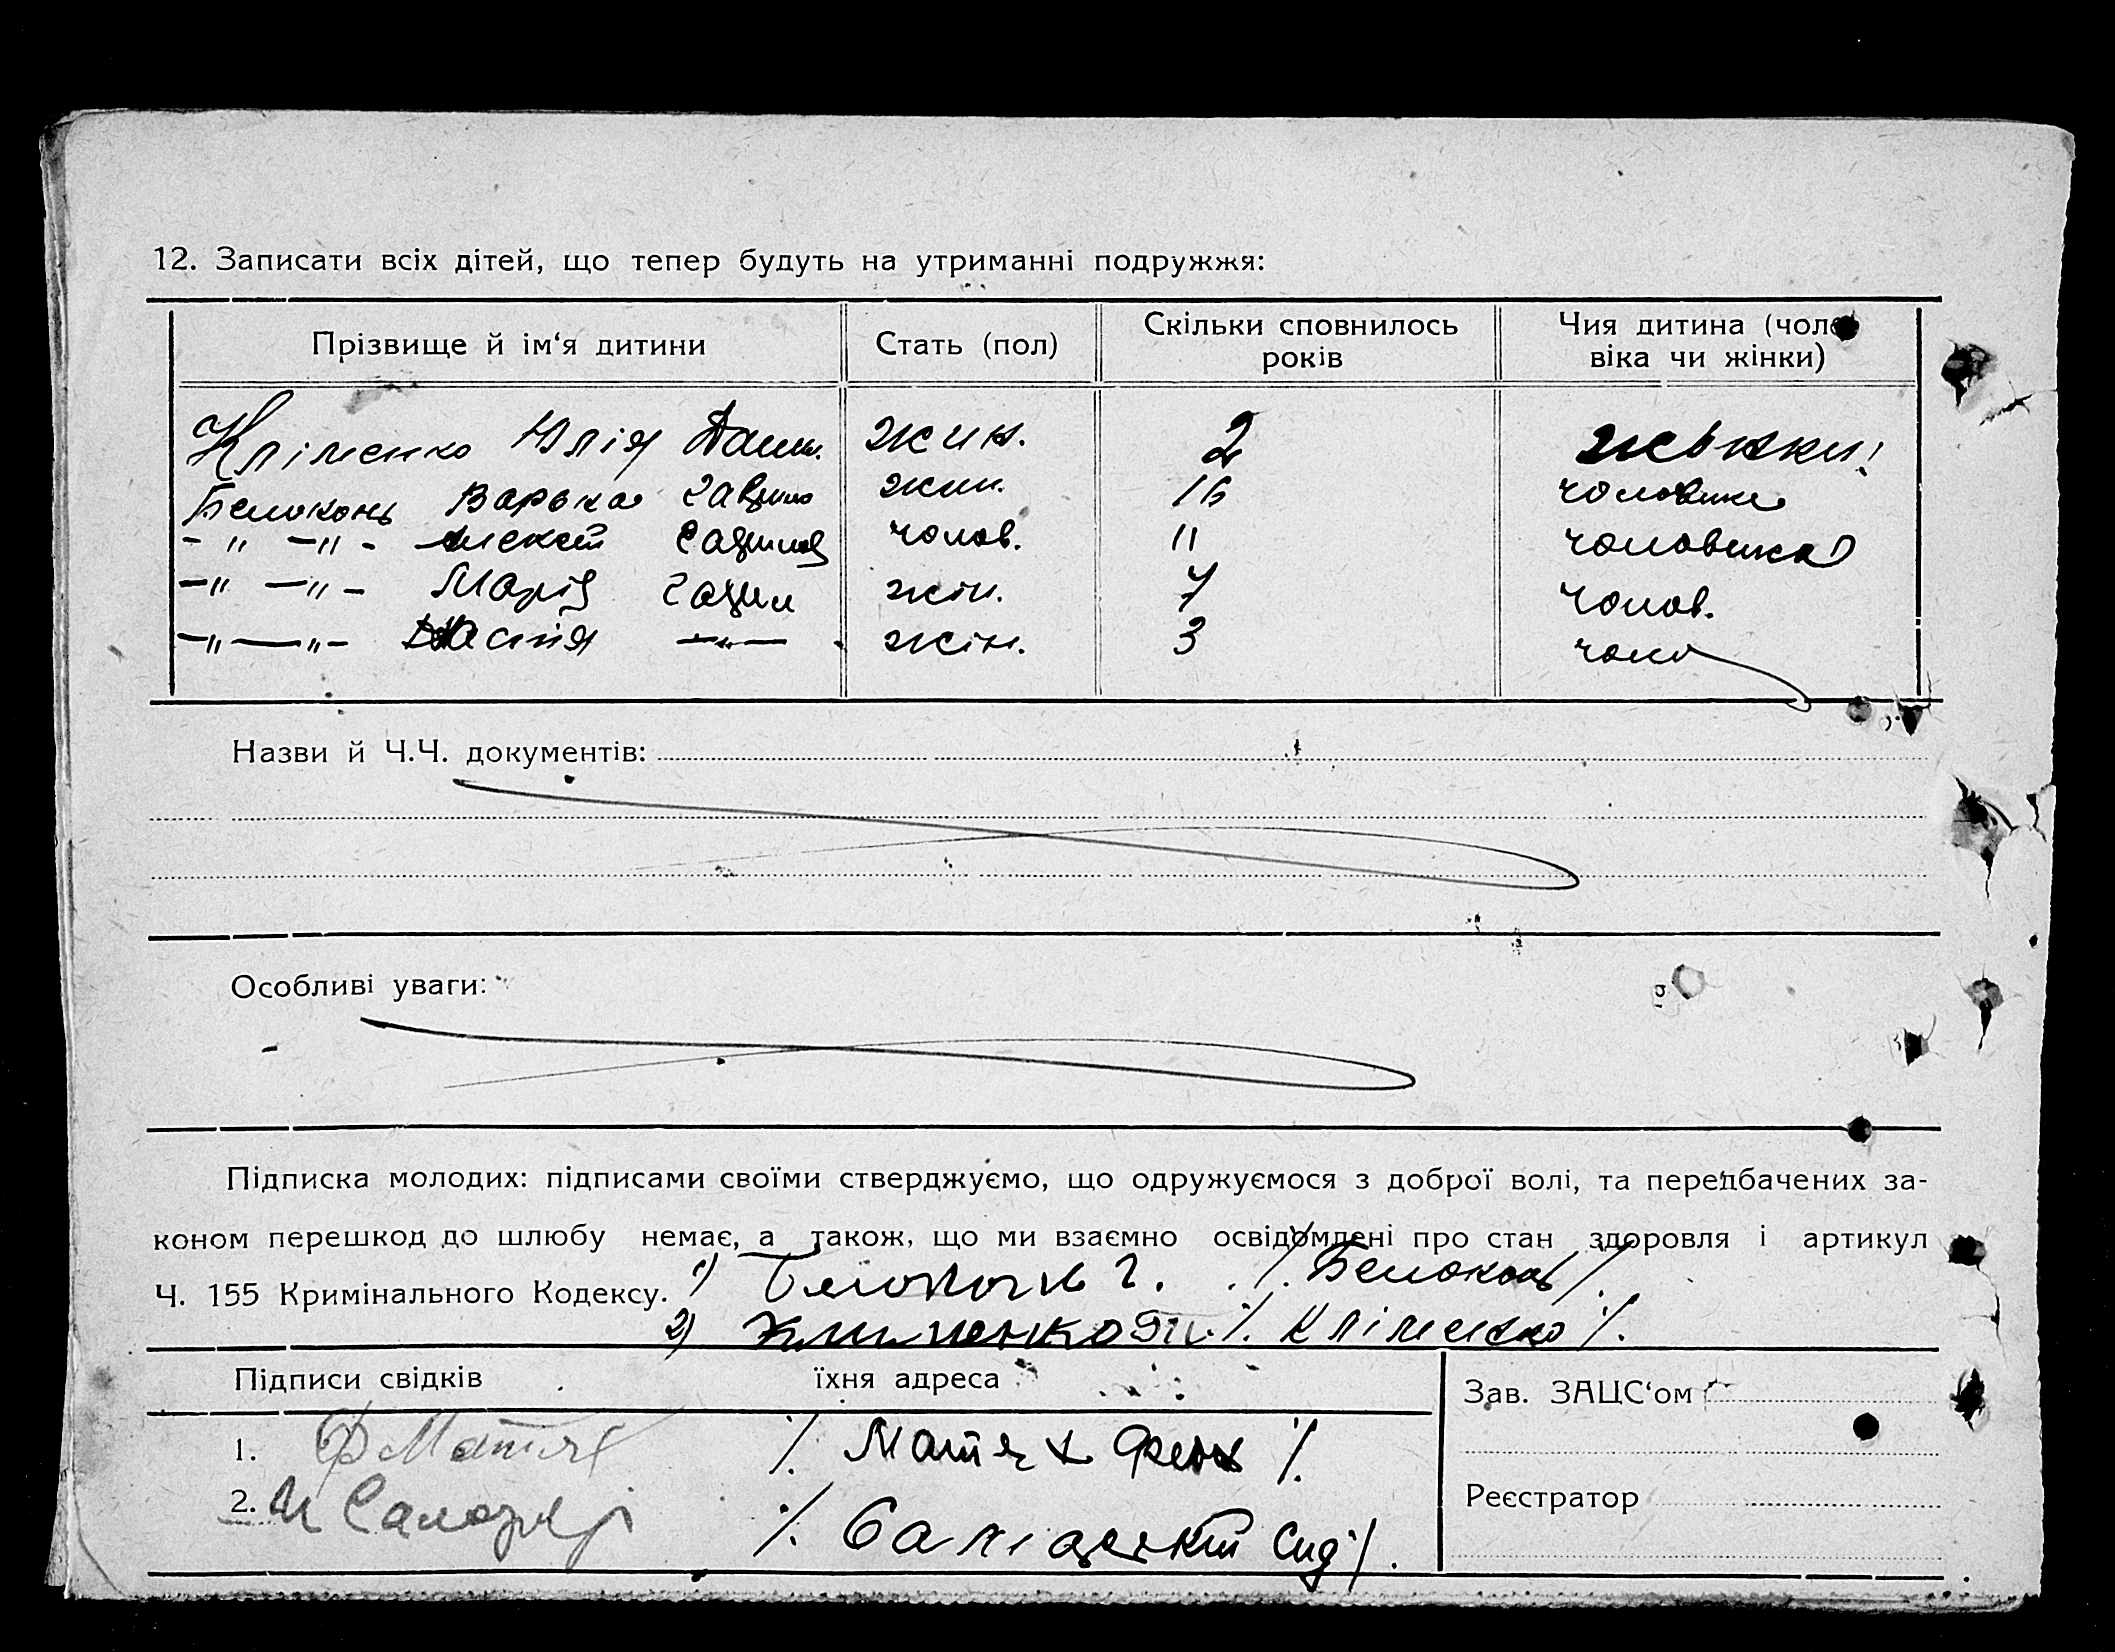 12. Записати всіх дітей, що тепер будуть на утриманні подружжя:
Прізвище й ім‘я дитини Стать (пол) Скільки сповнилось років Чия дитина (чоло віка чи жінки)
Кліменко Юлія жин. 2 жінки
Белоконь Варька жин. 16 чоловика
-„ -„- Алексей чолов. 11 чоловика
-„ -„- Марія жін. 7 чолов.
-„-„- Настія -„- жін. 3 чоло
Назви й Ч.Ч. документів:
Особливі уваги:
Підписка молодих: підписами своїми стверджуємо, що одружуємося з доброї волі, та передбачених за-
коном перешкод до шлюбу немає, а також, що ми взаємно освідомлені про стан здоровля і артикул
Ч. 155 Кримінального Кодексу. 1) Белоконь Г. /. Белоконь /.
2) Клименко /. Кліменко /.
Підписи свідків їхня адреса Зав. ЗАЦС‘ом
1. Ф Матях /. Матях /.
2. /. Сид /.
Реєстратор